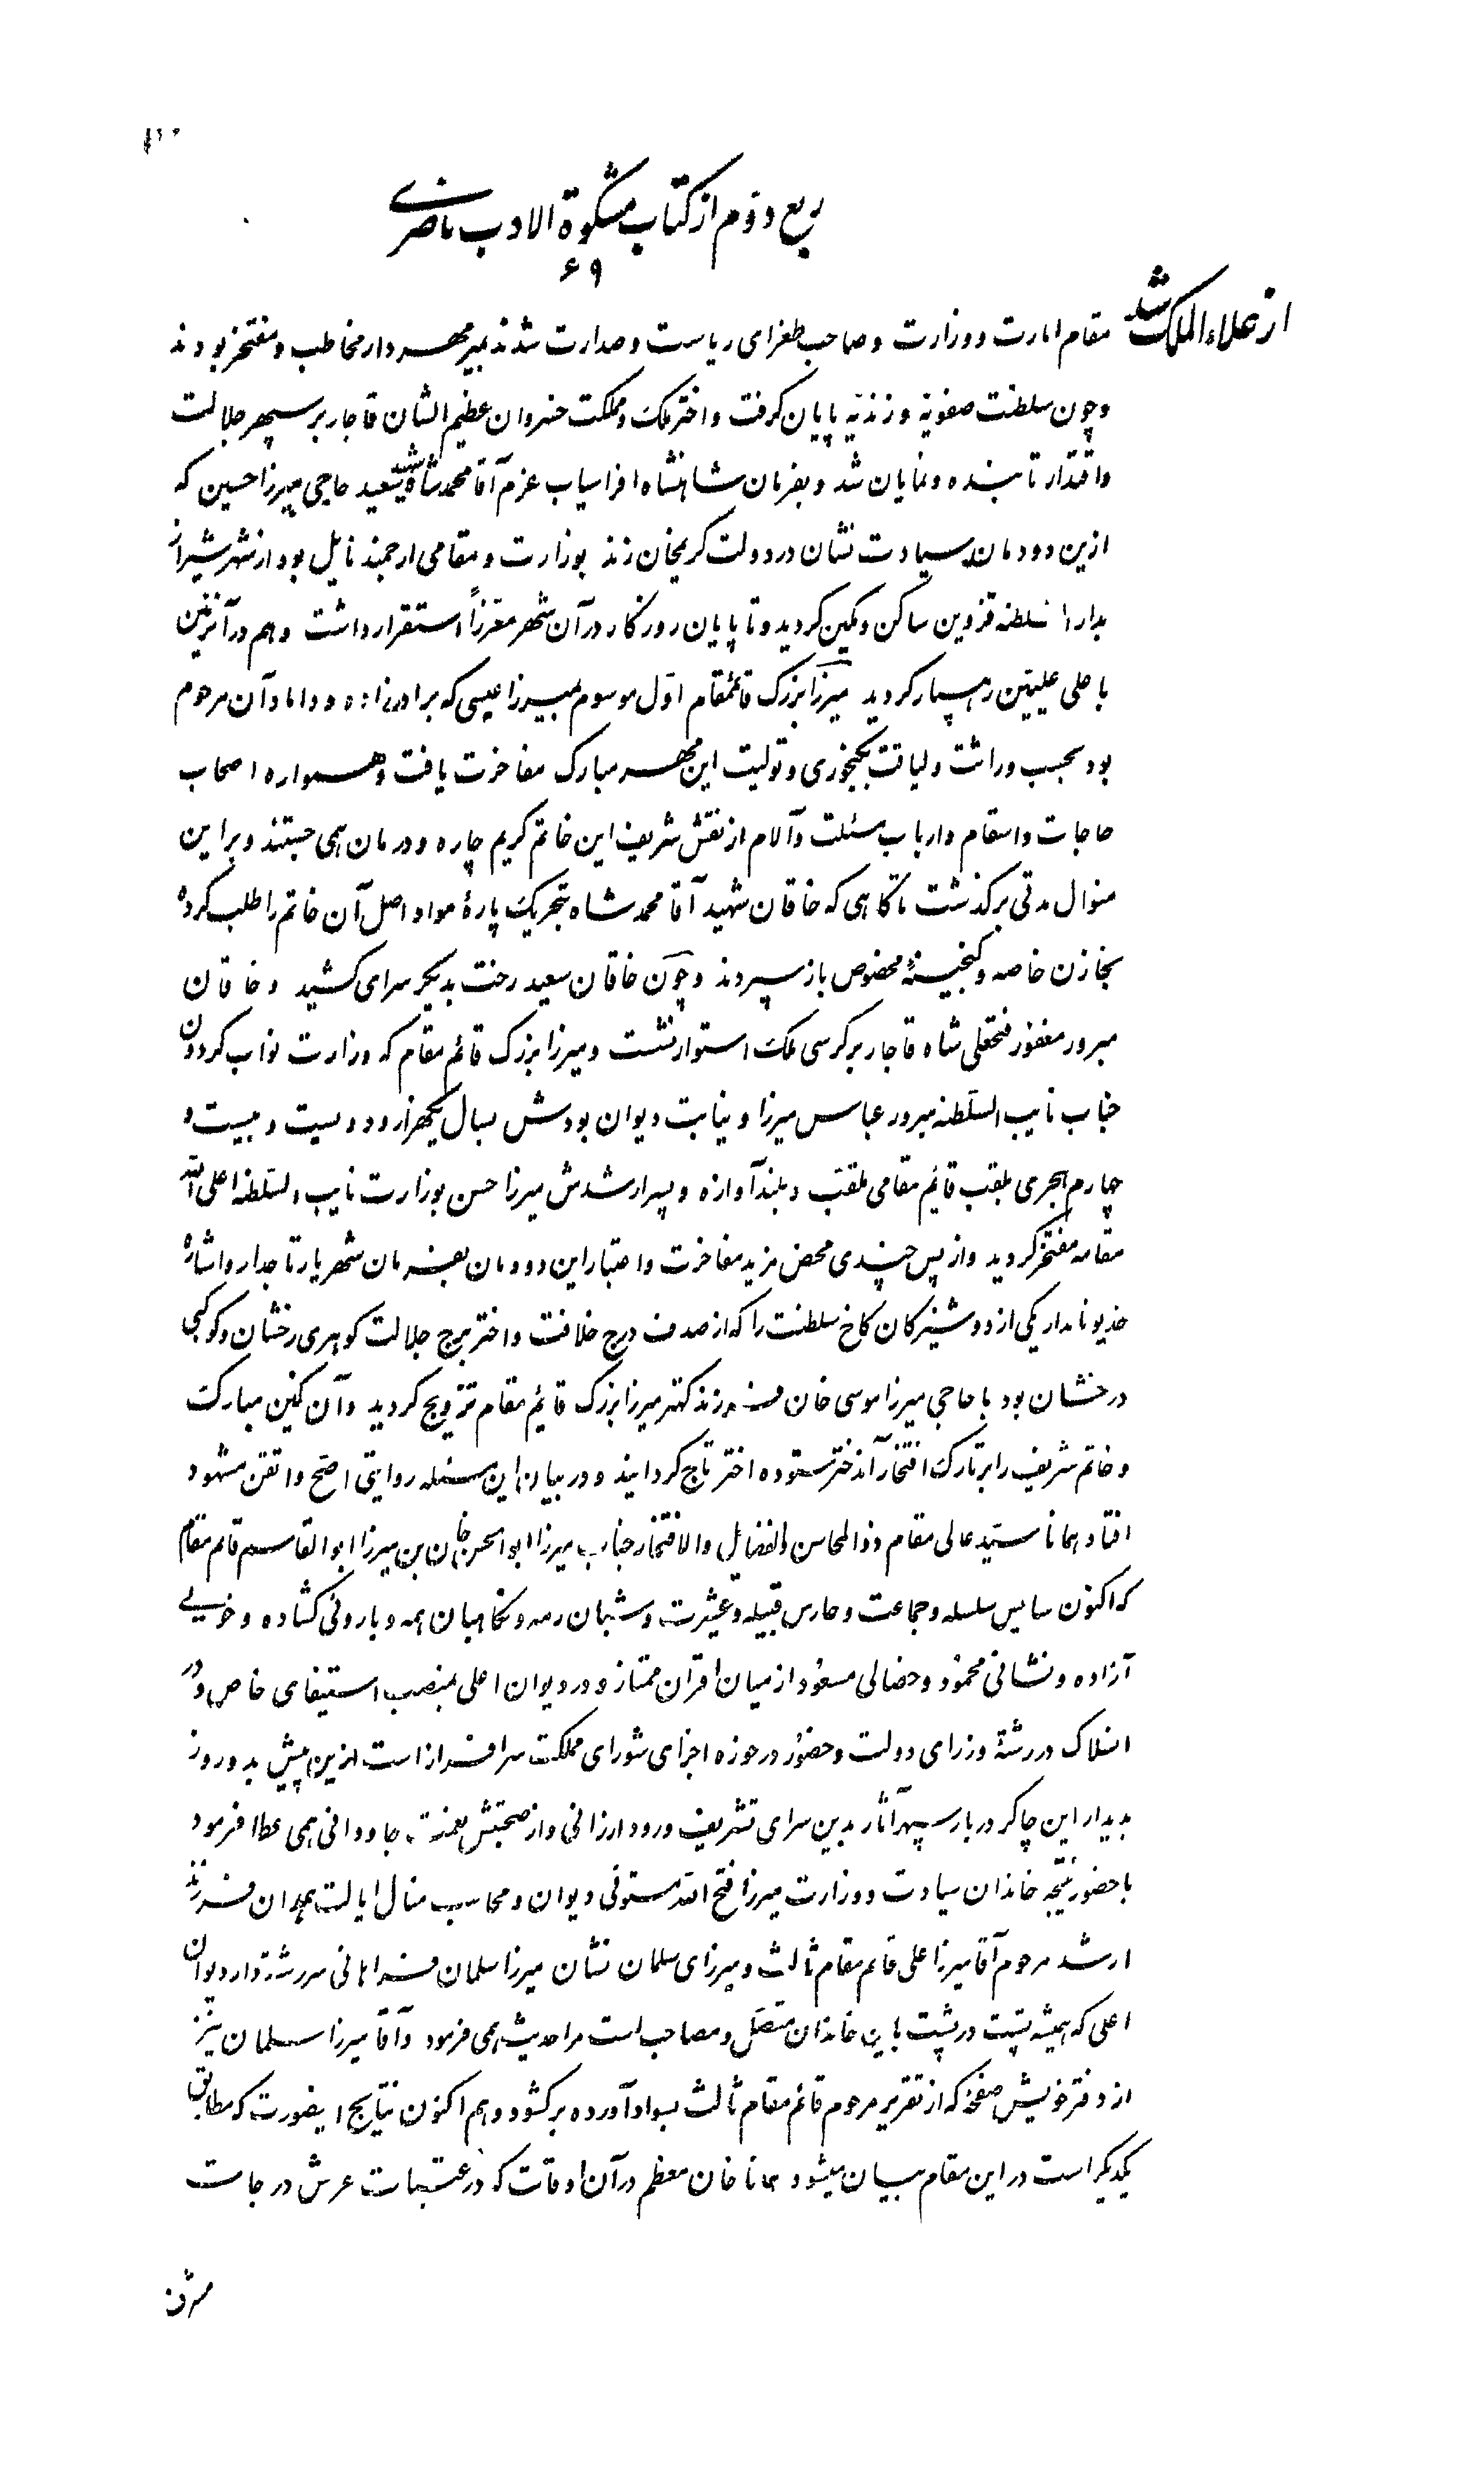 ربع دوّم از کتاب مشکوة الادب ناصری
۶۹
از علاء الملک شد
مقام امارت و وزارت و صاحب طغرای ریاست و صدارت شدند بمیر مهردار مخاطب و مفتخر بودند
و چون سلطنت صفویه و زندیه پایان گرفت و اختر ملک و مملکت خسروان عظیم الشان قاجار بر سپهر جلالت
و اقتدار تابنده و نمایان شد و بفرمان شاهنشاه افراسیاب عزم آقا محمد شاه شهید سعید حاجی میرزا حسین که
ازین دودمان سیادت نشان در دولت کریمخان زند بوزارت و مقامی ارجمند نایل بود از شهر شیراز
بدار السلطنه قزوین ساکن و مکین گردید و تا پایان روزگار در آن شهر معززاً استقرار داشت و هم در آنزمین
با علی علیین رهسپار گردید میرزا بزرک قائممقام اوّل موسوم بمیرزا عیسی که برادرزاده و داماد آن مرحوم
بود بحسب وراثت و لیاقت بگنجوری و تولیت این مهر مبارک مفاخرت یافت و همواره اصحاب
حاجات و اسقام و ارباب مسئلت و آلام از نقش شریف این خاتم کریم چاره و درمان همی جستند و بر این
منوال مدتی برگذشت تا گاهی که خاقان شهید آقا محمد شاه بتحریک پارهٔ مواد اصل آن خاتم را طلب کرده
بخازن خاصه و گنجینهٔ مخصوص باز سپردند و چون خاقان سعید رخت بدیگر سرای کشید و خاقان
مبرور مغفور فتحعلی شاه قاجار بر کرسی ملک استوار نشست و میرزا بزرک قائم مقام که وزارت نواب گردون
جناب نایب السلطنه مبرور عباس میرزا و نیابت دیوان بودش بسال یکهزار و دویست و بیست و
چهارم هجری بلقب قائم مقامی ملقب و بلند آوازه و پسر ارشدش میرزا حسن بوزارت نایب السلطنه اعلی الله
مقامه مفتخر گردید و از پس چندی محض مزید مفاخرت و اعتبار این دودمان بفرمان شهریار تاجدار و اشارهٔ
خدیو نامدار یکی از دوشیزگان کاخ سلطنت را که از صدف درج خلافت و اختر برج جلالت گوهری رخشان و کوکبی
درخشان بود با حاجی میرزا موسی خان فرزند کهتر میرزا بزرک قائم مقام تزویج گردید و آن نگین مبارک
و خاتم شریف را بر تارک افتخار آندختر ستوده اختر تاج گردانید و در بیان این مسئله روایتی اصح و اتقن مشهود
افتاد همانا سیّد عالی مقام ذو المحاسن و الفضایل و الافتخار جناب میرزا ابو الحسن خان بن میرزا ابو القاسم قائم مقام
که اکنون سایس سلسله و جماعت و حارس قبیله و عشیرت و شبان رمه و نگاهبان همه و با روئی گشاده و خوئی
آزاده و نشانی محمود و خصالی مسعود از میان اقران ممتاز و در دیوان اعلی بمنصب استیفای خاص و در
انسلاک در رشتهٔ وزرای دولت و حضور در حوزه اجزای شورای مملکت سرافراز است ازین پیش بدو روز
بدیدار این چاکر دربار سپهر آثار بدین سرای تشریف ورود ارزانی و از صحبتش نعمت جاودانی همی عطا فرمود
با حضور نتیجهٔ خاندان سیادت و وزارت میرزا فتح الله مستوفی دیوان و محاسب منال ایالت همدان فرزند
ارشد مرحوم آقا میرزا علی قائم مقام ثالث و میرزای سلمان نشان میرزا سلمان فراهانی سررشته دار دیوان
اعلی که همیشه پشت در پشت باین خاندان متصل و مصاحب است مرا حدیث همی فرمود و آقا میرزا سلمان نیز
از دفتر خویش صفحهٔ که از تقریر مرحوم قائم مقام ثالث بسواد آورده برگشود و هم اکنون نتایج اینصورت که مطابق
یکدیگر است در این مقام بیان میشود همانا خان معظم در آن اوقات که در عتبات عرش درجات